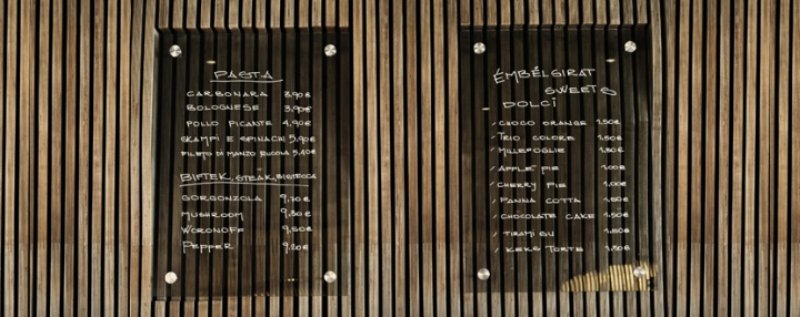 PASTA
CARBONARA 3,90€
BOLOGNESE 3,90€
POLLO PICANTE 4,90€
SKAMPI E SPINACIN 5,90€
FILETO DI MANZO RUCOLA 5,40€
BIFTEK, STEAK, BISTECCA
GORGONZOLA 9,70€
MUSHROOM 9,30€
WORONOFF 9,50€
PEPPER 9,20€
ËMBËLSIRAT
SWEETS
DOLCI
CHOCO ORANGE 1.50€
TRIO COLORE 1,50€
MILLEFOGLIE 1,80€
APPLE PIE 1.00€
CHERRY PIE 1,00€
PANNA COTTA 1.50€
CHOCOLATE CAKE 1.50€
TIRAMISU 1.50€
KEKS TORTE 1.50€